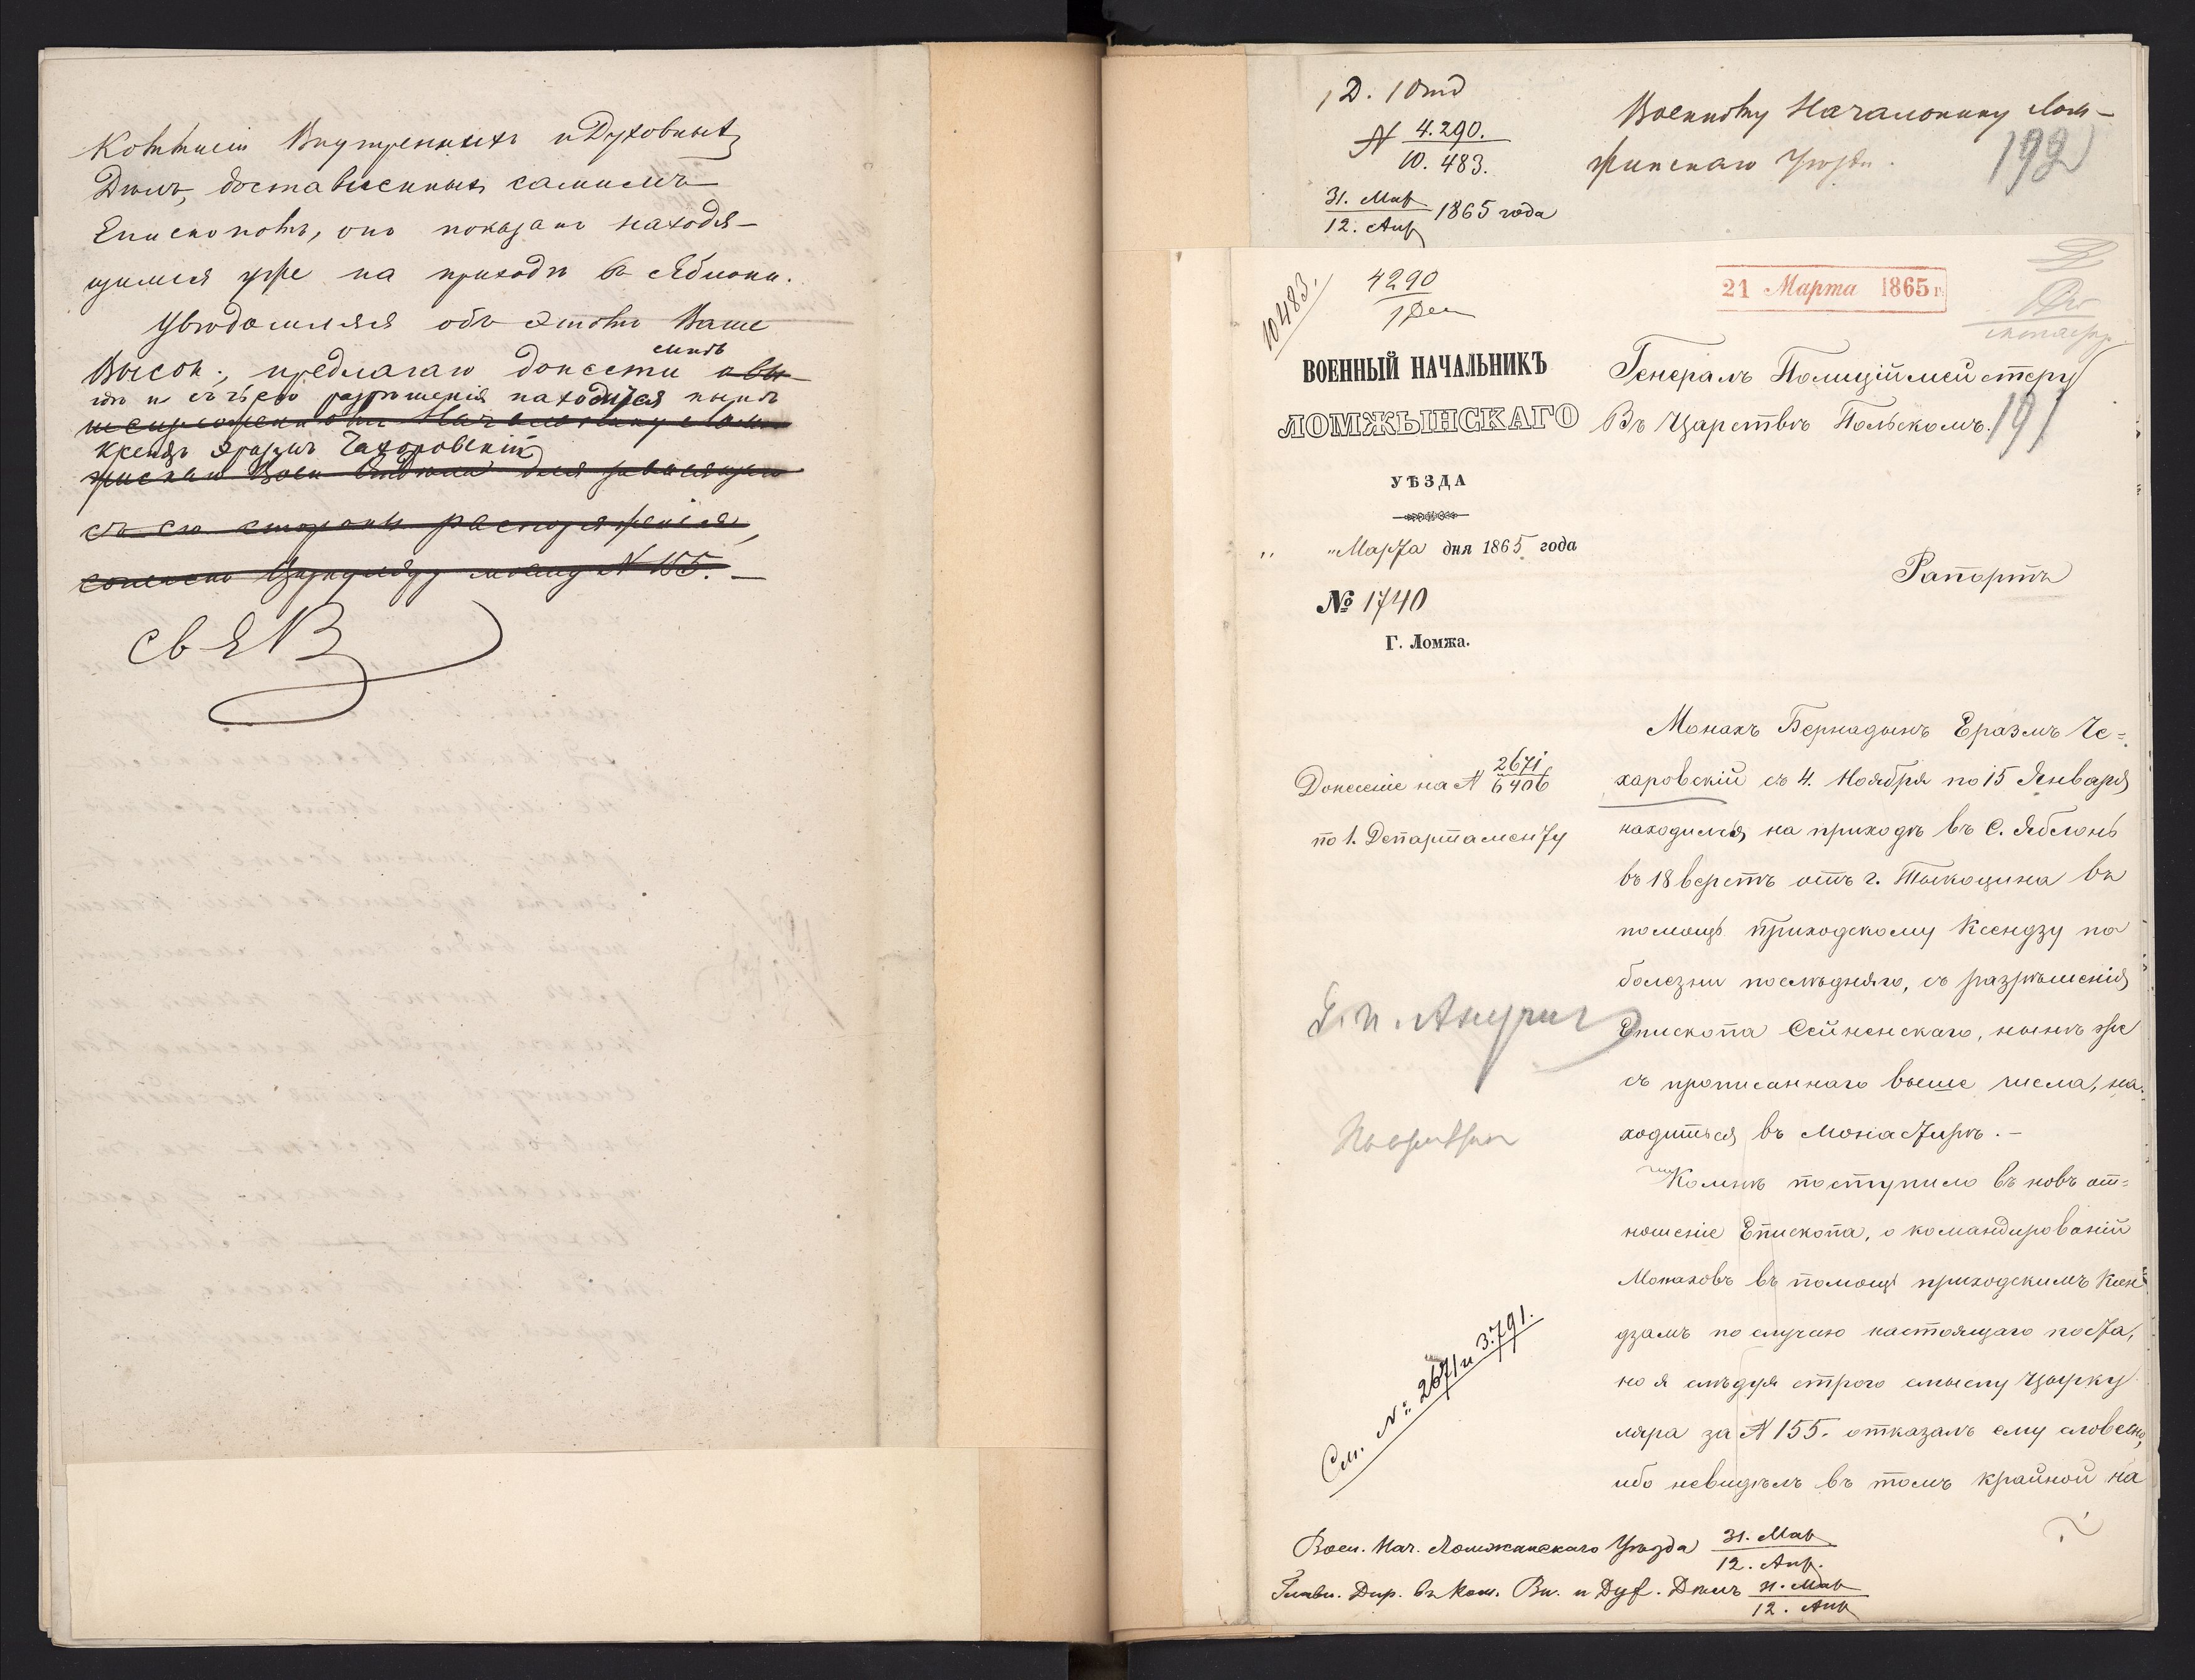 Коммисіи Внутреннихъ и Духовныхъ
Дѣлъ, доставленныхъ самимъ
Епископомъ, онъ показанъ находя-
щимся уже на приходѣ въ Яблони.
Увѣдомляя объ этомъ Ваше
Высок., предлагаю донести мнѣ
гдѣ и съ чьего разрѣшенія находится нынѣ
Ксендзъ Эразмъ Чахоровскій
съ его стороны распоряженія,
согласно Циркуляру моему N 155.
1 Д. 1 Отд
N 4.290.
10.483.
31. Мар
12. Апр 1865 года
Военному Начальнику Лом-
жинскаго Уѣзда.
192
10483.
4290
21 Марта 1865 г.
ВОЕННЫЙ НАЧАЛЬНИКЪ
ЛОМЖЫНСКАГО
УѢЗДА
„ „ Марта дня 1865 года
№ 1740
Г. Ломжа.
Генералъ Полиціймейстеру
Въ Царствѣ Польскомъ.
191
Рапортъ
Донесеніе на N 2671
6406
по 1. Департаменту
Монахъ Бернадынъ Еразмъ Че=
харовскій съ 4. Ноября по 15 Января
находился на приходѣ въ С. Яблонь
въ 18 верстъ отъ г. Тыкоцина въ
помощь приходскому Ксендзу по
болезни послѣдняго, съ разрѣшенія
Епископа Сейненскаго, нынѣ же
съ прописаннаго выше числа, на-
ходиться въ Монастырѣ. –
Комнѣ поступило въ новъ от=
ношеніе Епископа, о командированіи
Монаховъ въ помощь приходскимъ Ксен
дзамъ по случаю настоящаго поста,
но я слѣдуя строго смыслу Цырку
ляра за N 155. отказалъ ему словесно,
ибо невидѣлъ въ томъ крайной на
См. N: 2671 и 3.791.
Воен. Нач. Ломжинскаго Уѣзда 31. Мар
12. Апр.
Главн. Дир. въ Ком. Вн. и Дух. Дѣлъ 31. Мар
12. Апр